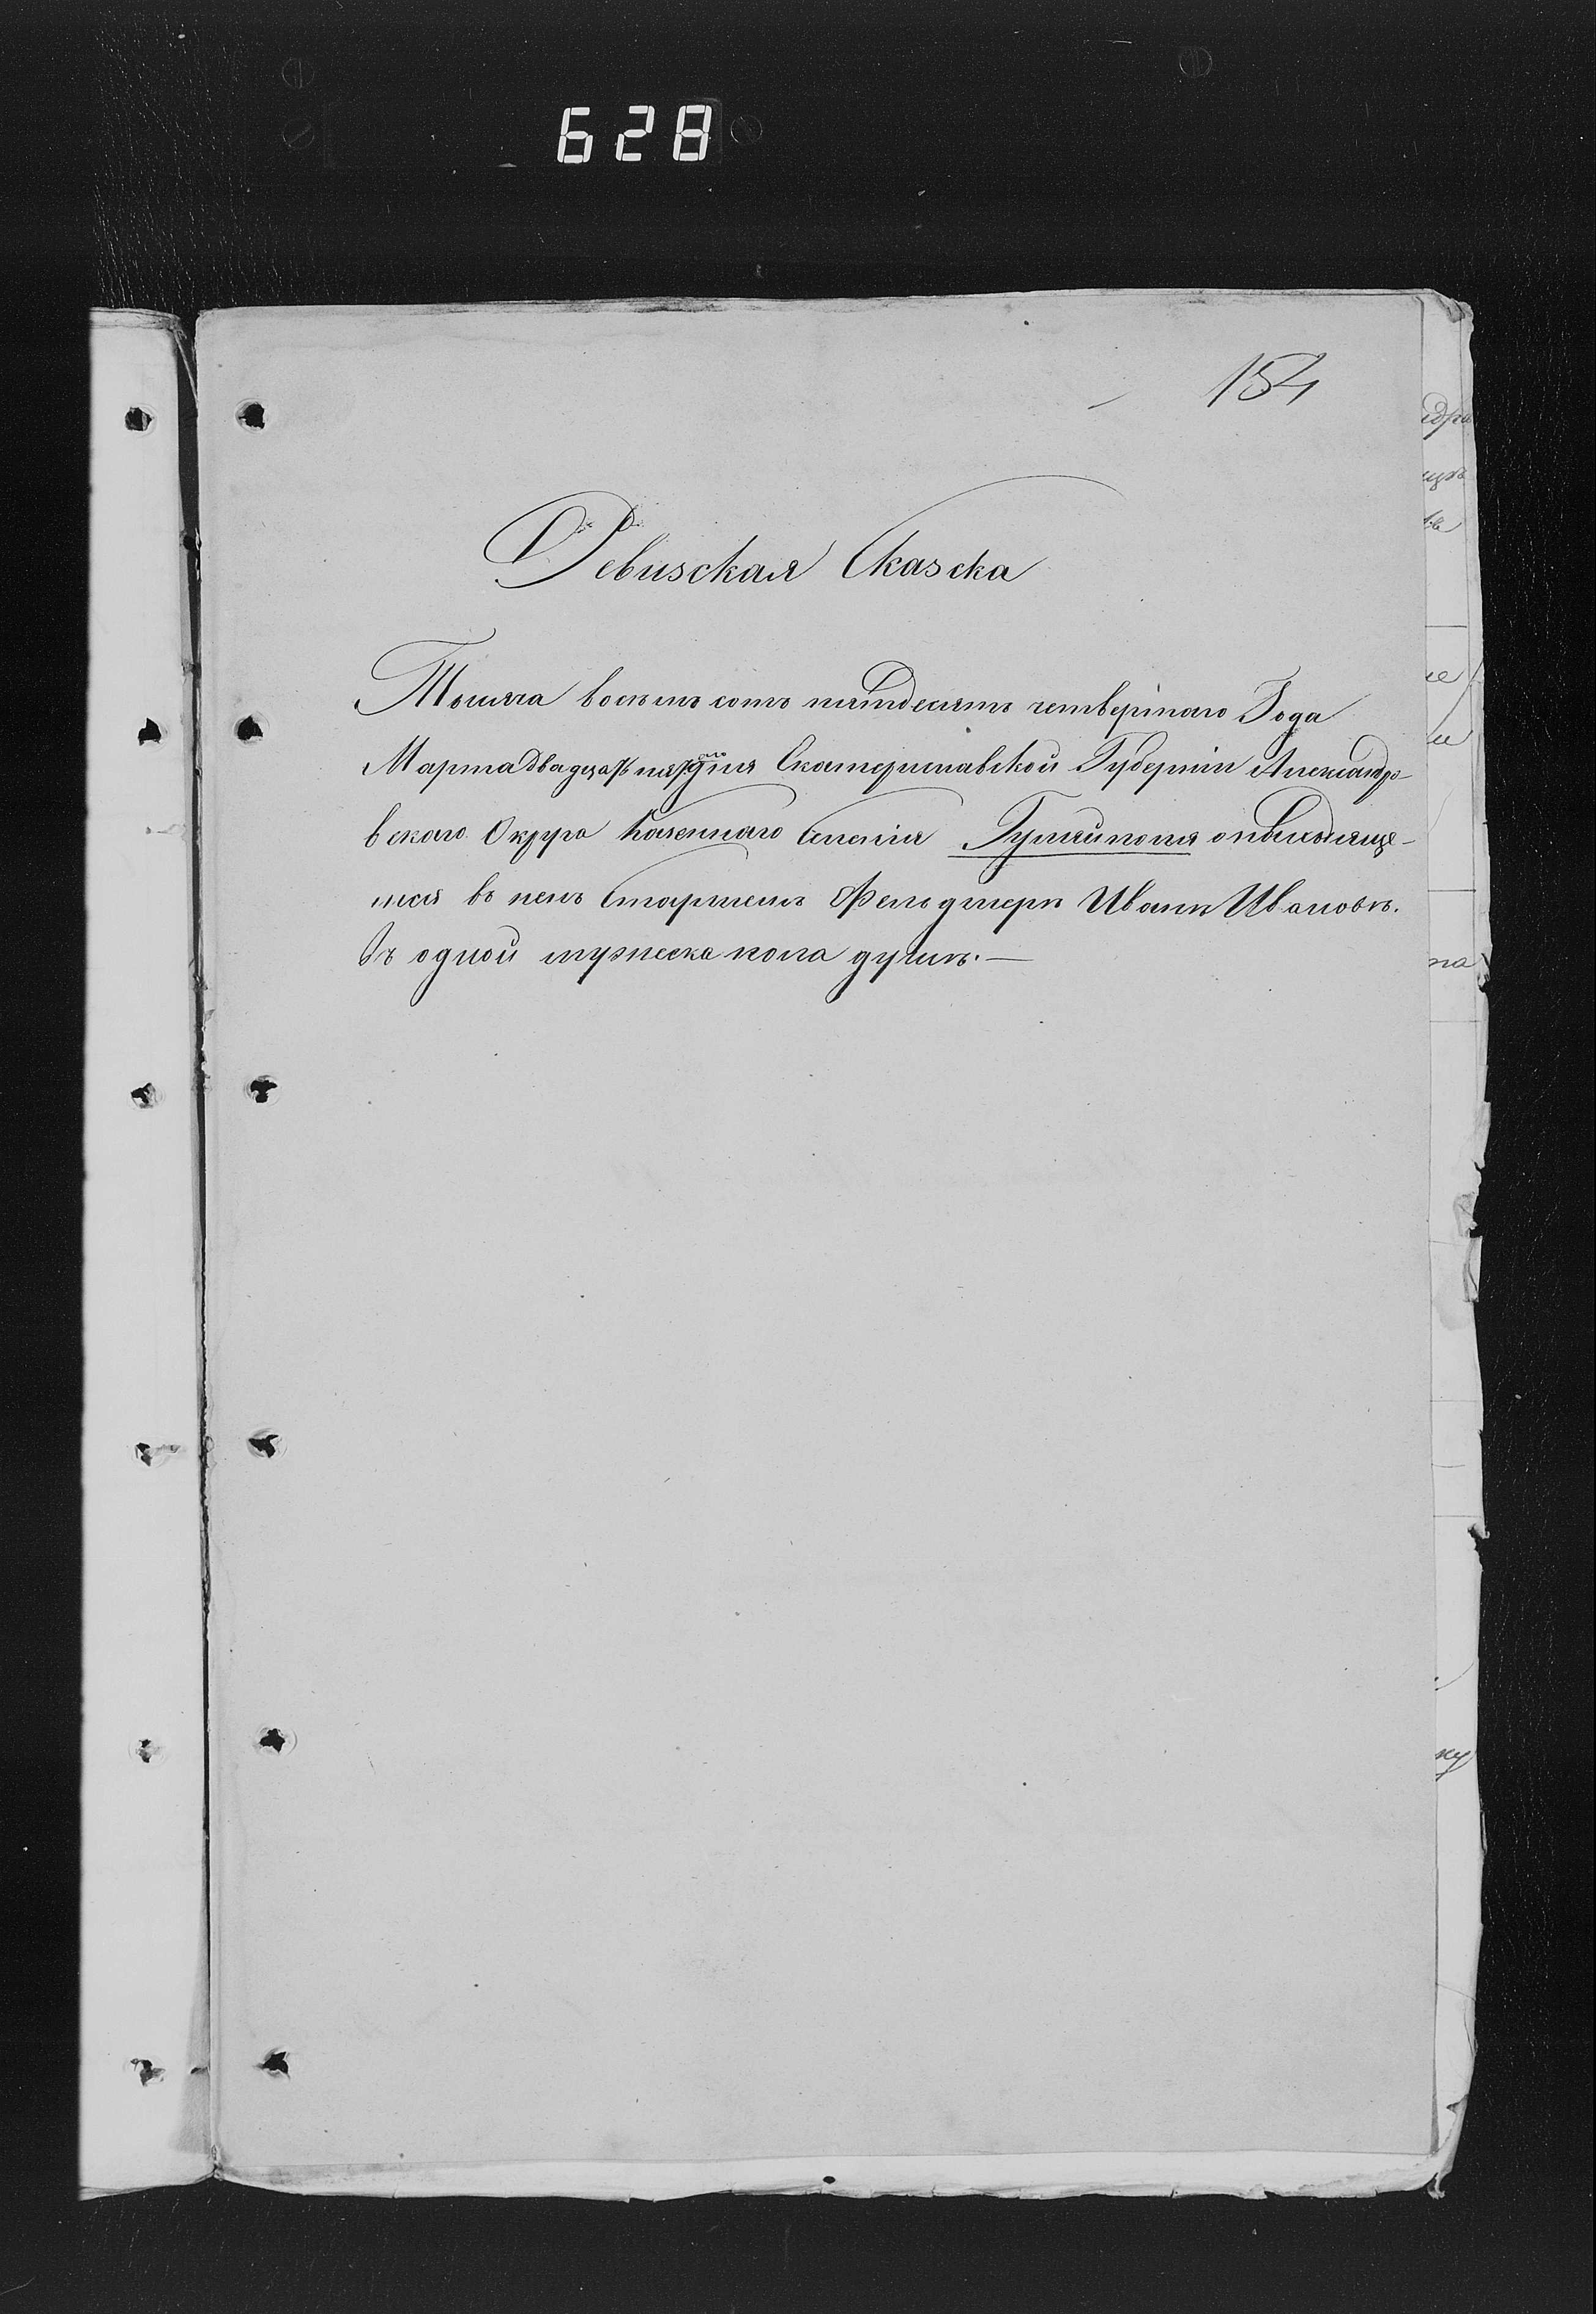 628
154
Ревизская Сказска
Тысяча восемь сотъ пятдесятъ четвертаго Года
Марта двадцать пятаго дня Екатеринославской Губерніи Александро-
вскаго Округа казеннаго Селенія Гуляйполя о находяще-
мся въ немъ Старшемъ Фельдшерѣ Иванѣ Ивановѣ.
одной мужеска пола душѣ.—
на
ку